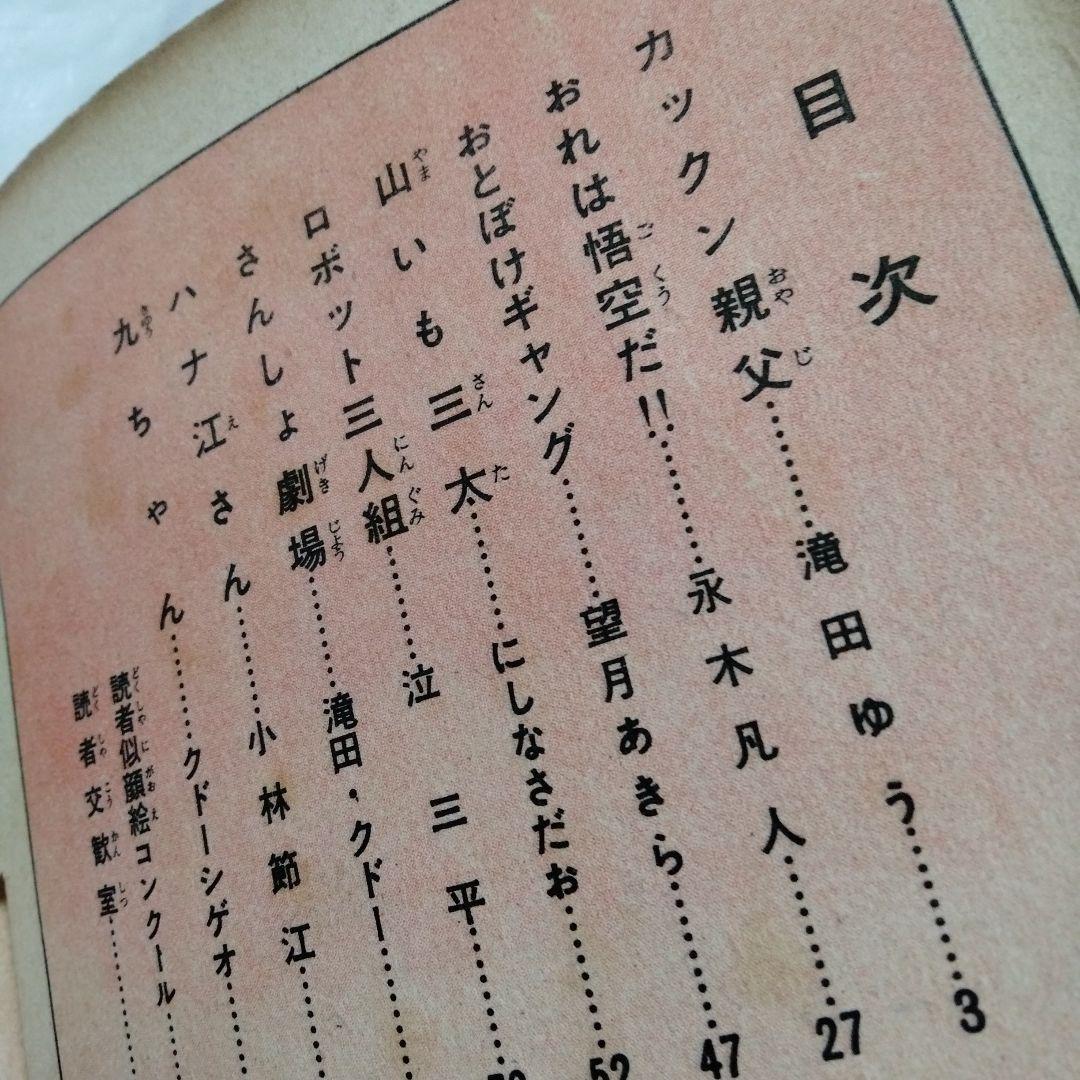 目次
カックン親父……滝田ゆう……3
おれは悟空だ!!……永木凡人……27
おとぼけギャング……望月あきら……47
山いも三太……にしなさだお……52
ロボット三人組……泣三平……
さんしょ劇場……滝田・クドー……
ハナ江さん……小林節江……
九ちゃん……クドーシゲオ……
読者似顔絵コンクール……
読者交歓室……